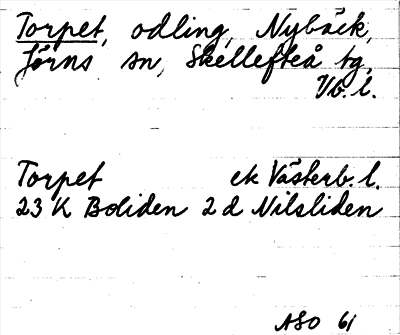 Torpet, odling, Nybäck,
Jörns sn, Skellefteå tg,
Vb. l.
Torpet ek Västerb. l.
23 K Boliden 2 d Nilsliden
ASO 61